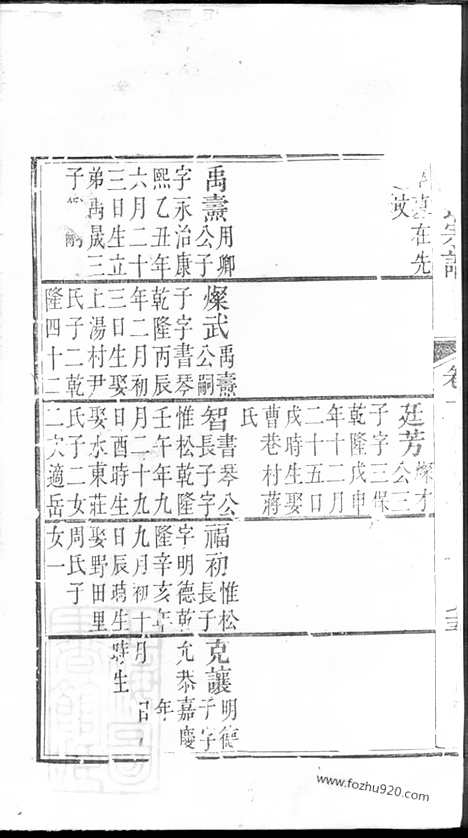 宗譜
卷
在先
禹壽 用卿公子
字永治康
熙乙丑年
六月二十
三日生立
弟禹晟三
子 嗣
燦武 禹壽公嗣
子字書琴
乾隆丙辰
年二月初
三日生娶
上湯村尹
氏子二乾
隆四十二
廷芳 燦才公三
子字三保
乾隆戊申
年十二月
二十五日
戌時生娶
曹巷村蔣
氏
智 書琴公長子字
惟松乾隆
壬午年九
月二十九
日酉時生
娶水東莊
氏子二女
二次適岳
福初 惟松長子
字明德乾
隆辛亥年
九月初十
日辰時生
娶野田里
周氏子
女一
克讓 明德子字
允恭嘉慶
年
月 日
時生
www.fozhu920.com